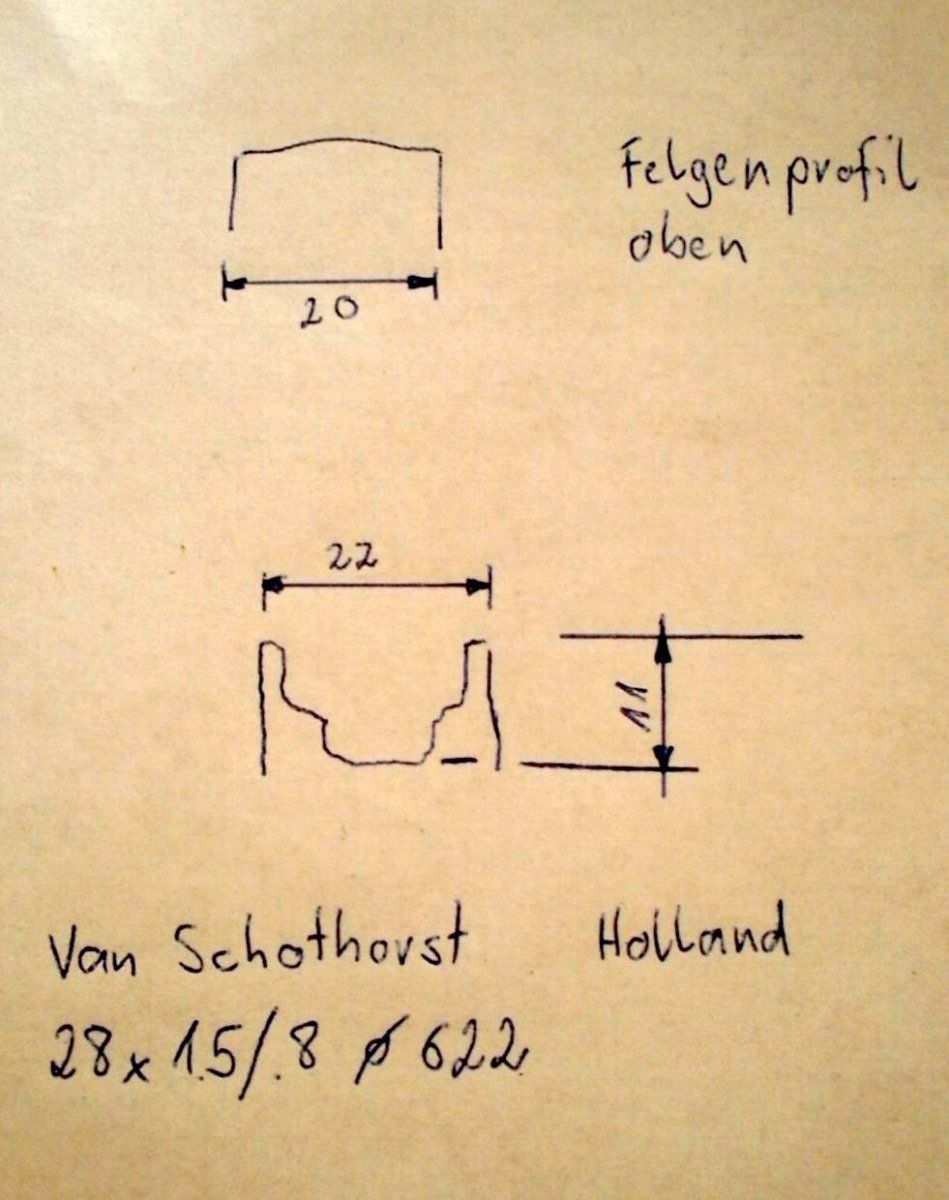 Felgenprofil
oben
20
22
11
Van Schothorst Holland
28x 1.5/.8 ø 622